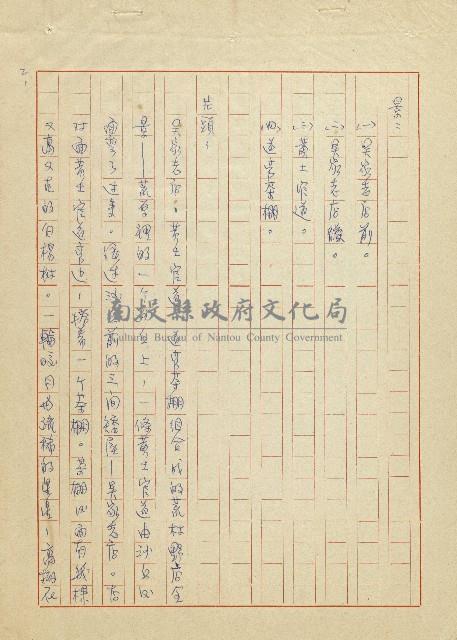 景：
(一)吳家老店前。
(二)吳家老店後。
(三)黃土官道。
(四)道旁茶棚。
片頭：
吳家老店，黃土官道，道旁茶棚組合成的荒村野店全
景——荒草裡的一個土台上，一條黃土官道由沙丘後
面彎了過來。經過台前的三間矮屋—吳家老店。店
對面黃土官道旁邊，搭着一个茶棚。茶棚後面有幾棵
又高又老的白楊樹。一輪皎月與疏稀的星星，高掛在
南投縣政府文化局
Cultural Bureau of Nantou County Government